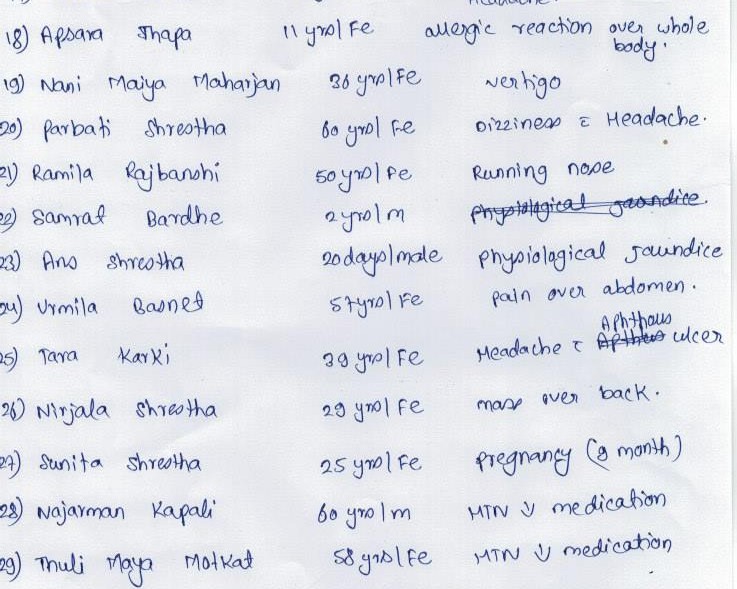 18) Apsara Thapa 11 yrs/Fe allergic reaction over whole
body.
19) Nani Maiya Maharjan 36 yrs/Fe vertigo
20) Parbati Shrestha 60 yrs/Fe Dizziness c̄ Headache.
21) Ramila Rajbanshi 50 yrs/Fe Running nose
22) Samrat Bardhe 2 yrs/m physiological jaundice.
23) Ans Shrestha 20 days/male physiological Jaundice
24) Urmila Basnet 57 yrs/Fe pain over abdomen.
Aphthous
25) Tara Karki 39 yrs/Fe Headache c̄ ulcer
26) Nirjala Shrestha 29 yrs/Fe mass over back.
27) Sunita Shrestha 25 yrs/Fe pregnancy (9 month)
28) Najarman Kapali 60 yrs/m HTN ↓ medication
29) Thuli Maya Motkat 58 yrs/Fe HTN ↓ medication